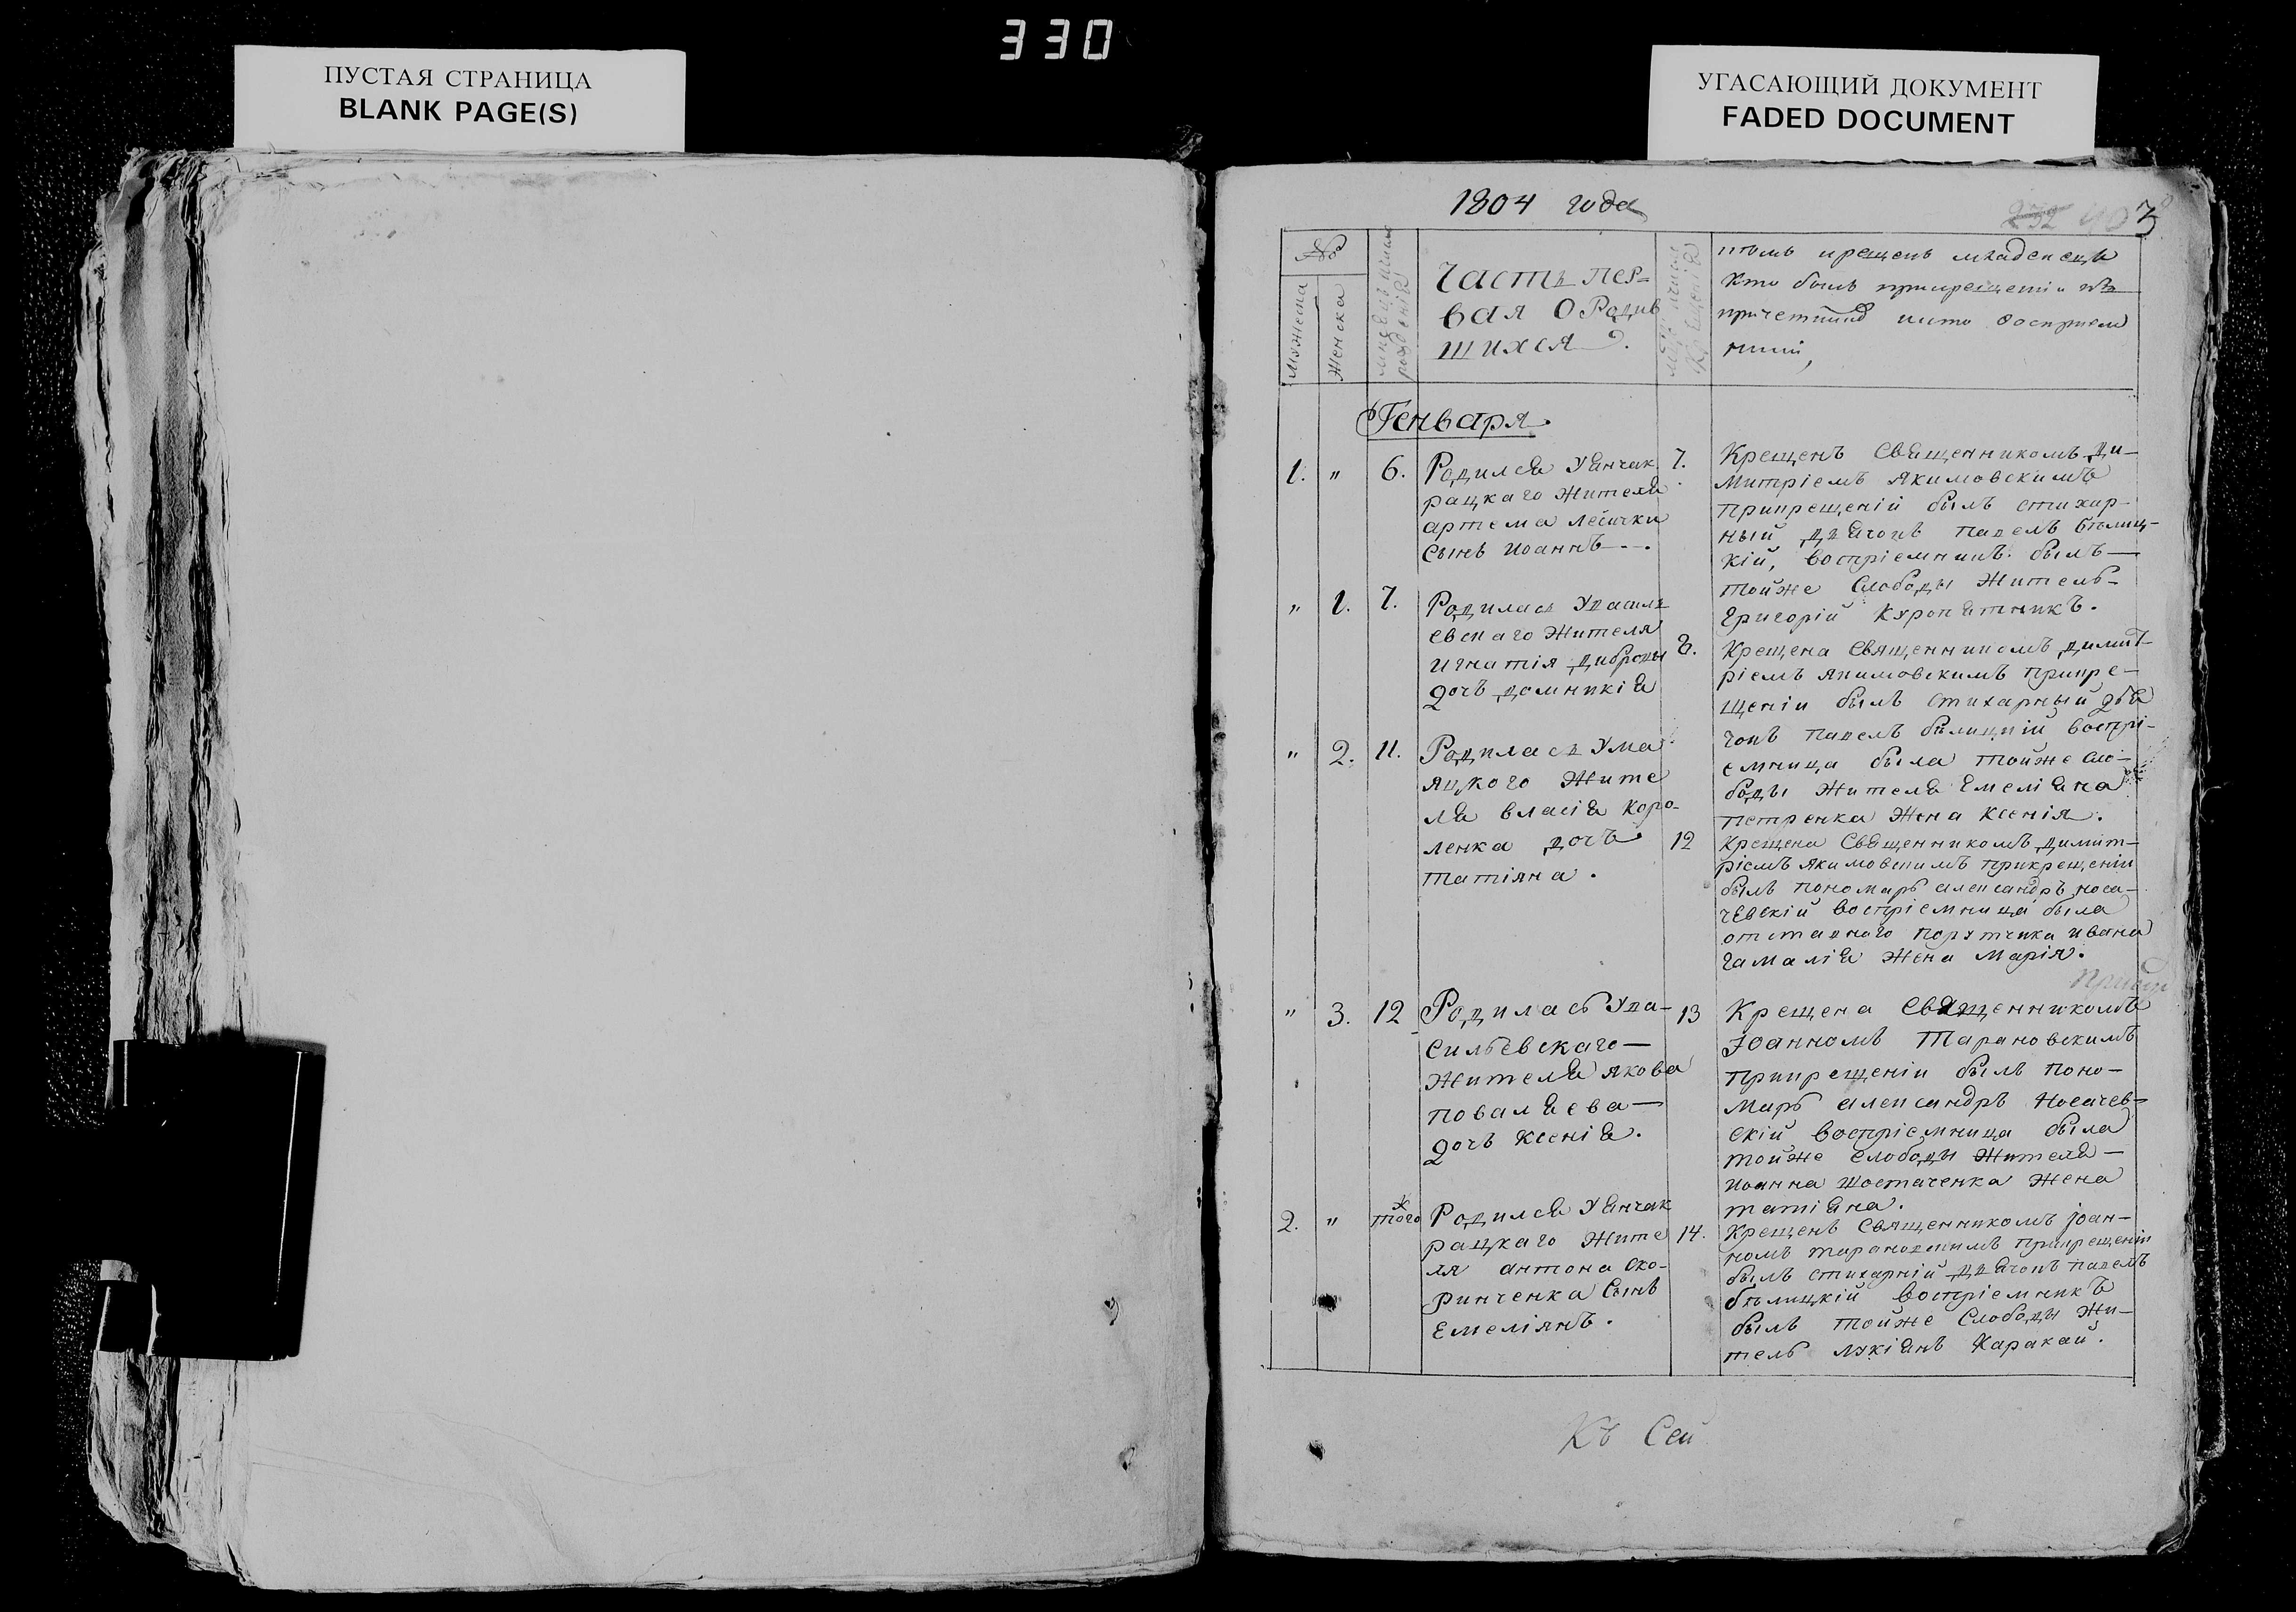 330
ПУСТАЯ СТРАНИЦА
BLANK PAGE(S)
УГАСАЮЩИЙ ДОКУМЕНТ
FADED DOCUMENT
1804 года
232 403
№
Мужеска
Женска
рожденія
Часть пер=
вая О Родив
шихся
Крещенія
крещенъ младенецъ
Кто былъ при
причетник
Генваря
1. " 6.
Родился У Янчак
рацкаго Жителя
артема лесички
Сынъ Иоаннъ
7.
Крещенъ Священникомъ Ди-
митріемъ Якимовскимъ
При крещеній былъ стихар-
ный дьячокъ Павелъ Белиц-
кій, воспріемникъ былъ
тойже Слободы Житель
Григорій Куропятникъ.
" 1. 7.
Родилась У василь
евскаго Жителя
Игнатія Диброды
дочь Домникія
8.
Крещена Священникомъ Димит-
ріемъ Якимовскимъ При кре-
щеніи былъ стихарный дья
чокъ Павелъ Белицкій воспрі-
емница была тойже сло-
боды Жителя Емеліяна
Петренка Жена Ксенія.
" 2. 11.
Родилась У ма
яцкого Жите
ля власія Коро-
ленка дочь
татіяна.
12
Крещена Священникомъ Димит-
ріемъ Якимовскимъ при крещеніи
былъ пономарь александръ носа-
чевскій воспріемница была
отставнаго порутчика ивана
гамалія Жена Марія.
" 3. 12
Родилась У ва-
сильевскаго
Жителя якова
поваляева
дочь Ксенія.
13
Крещена Священникомъ
Іоанномъ Тарановскимъ
При крещеніи былъ поно-
марь александръ Носачев-
скій воспріемница была
тойже слободы Жителя
Иоанна Шостаченка Жена
татіяна.
2. " тогож
Родился У Янчак
рацкаго Жите
ля антона Ско-
ринченка Сынъ
Емеліянъ.
14.
Крещенъ Священникомъ Іоан-
номъ тарановскимъ При крещеніи
былъ стихарній дьячокъ павелъ
белицкій воспріемникъ
былъ тойже Слободы Жи-
тель лукіянъ Каракай.
Къ Сей